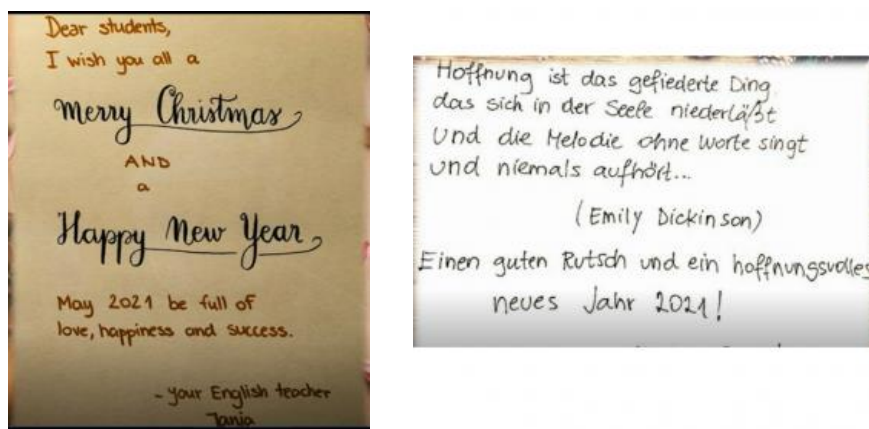 Dear students,
I wish you all a
Merry Christmas
AND
a
Happy New Year
May 2021 be full of
love, happiness and success.
- your English teacher
Tanja
Hoffnung ist das gefiederte Ding
das sich in der Seele niederläßt
und die Melodie ohne Worte singt
und niemals aufhört...
(Emily Dickinson)
Einen guten Rutsch und ein hoffnungsvolles
neues Jahr 2021!